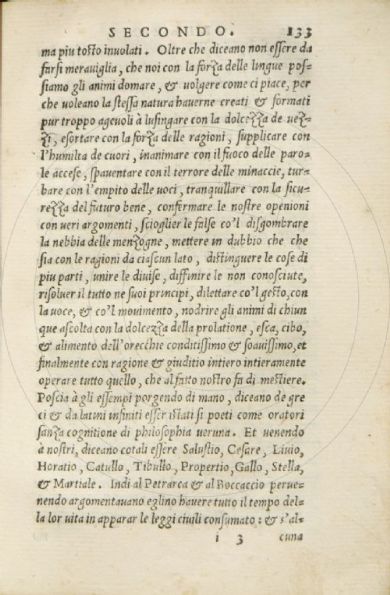 SECONDO. 133
ma piu tosto inuolati. Oltre che diceano non essere da
farsi merauiglia, che noi con la forza delle lingue pos=
siamo gli animi domare, & volgere come ci piace, per
che uoleano la stessa natura hauerne creati & formati
pur troppo ageuoli à lusingare con la dolcezza de uez=
zi, esortare con la forza delle ragioni, supplicare con
l'humilta de cuori, inanimare con il fuoco delle paro=
le accese, spauentare con il terrore delle minaccie, tur=
bare con l'empito delle uoci, tranquillare con la sicu=
rezza del futuro bene, confermare le nostre openioni
con ueri argomenti, scioglier le false co'l disgombrare
la nebbia delle menzogne, mettere in dubbio che che
sia con le ragioni da ciascun lato, distinguere le cose di
piu parti, unire le diuise, diffinire le non conosciute,
risoluer il tutto ne suoi principi, dilettare co'l gesto, con
la uoce, & co'l mouimento, nodrire gli animi di chiun
que ascolta con la dolcezza della prolatione, esca, cibo,
& alimento dell'orecchie conditissimo & soauissimo, et
finalmente con ragione & giuditio intiero intieramente
operare tutto quello, che al fatto nostro fa di mestiere.
Poscia à gli essempi porgendo di mano, diceano de gre
ci & da latini infiniti esser istati si poeti come oratori
sanza cognitione di philosophia ueruna. Et uenendo
à nostri, diceano cotali essere Salustio, Cesare, Liuio,
Horatio, Catullo, Tibullo, Propertio, Gallo, Stella,
& Martiale. Indi al Petrarca & al Boccaccio perue=
nendo argomentauano eglino hauere tutto il tempo del=
la lor uita in apparar le leggi ciuili consumato: & s'al=
i 3 cuna